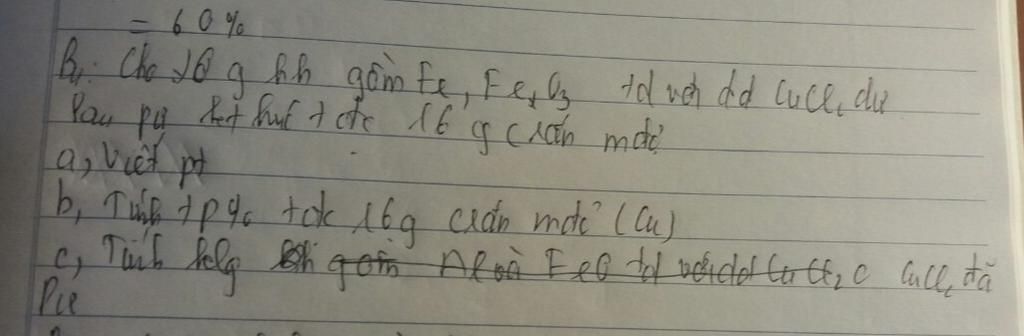 = 60%
B1: Cho 26 g hh gồm Fe, Fe2O3 td với dd CuCl2 dư
Sau pư kết thúc tđc 16 g crắn mđỏ
a, Viết pt
b, Tính tp% tđc 16g crắn mđỏ (Cu)
c, Tính klg gồm Al và FeO td với dd CuCl2 c CuCl2 đã
Pư